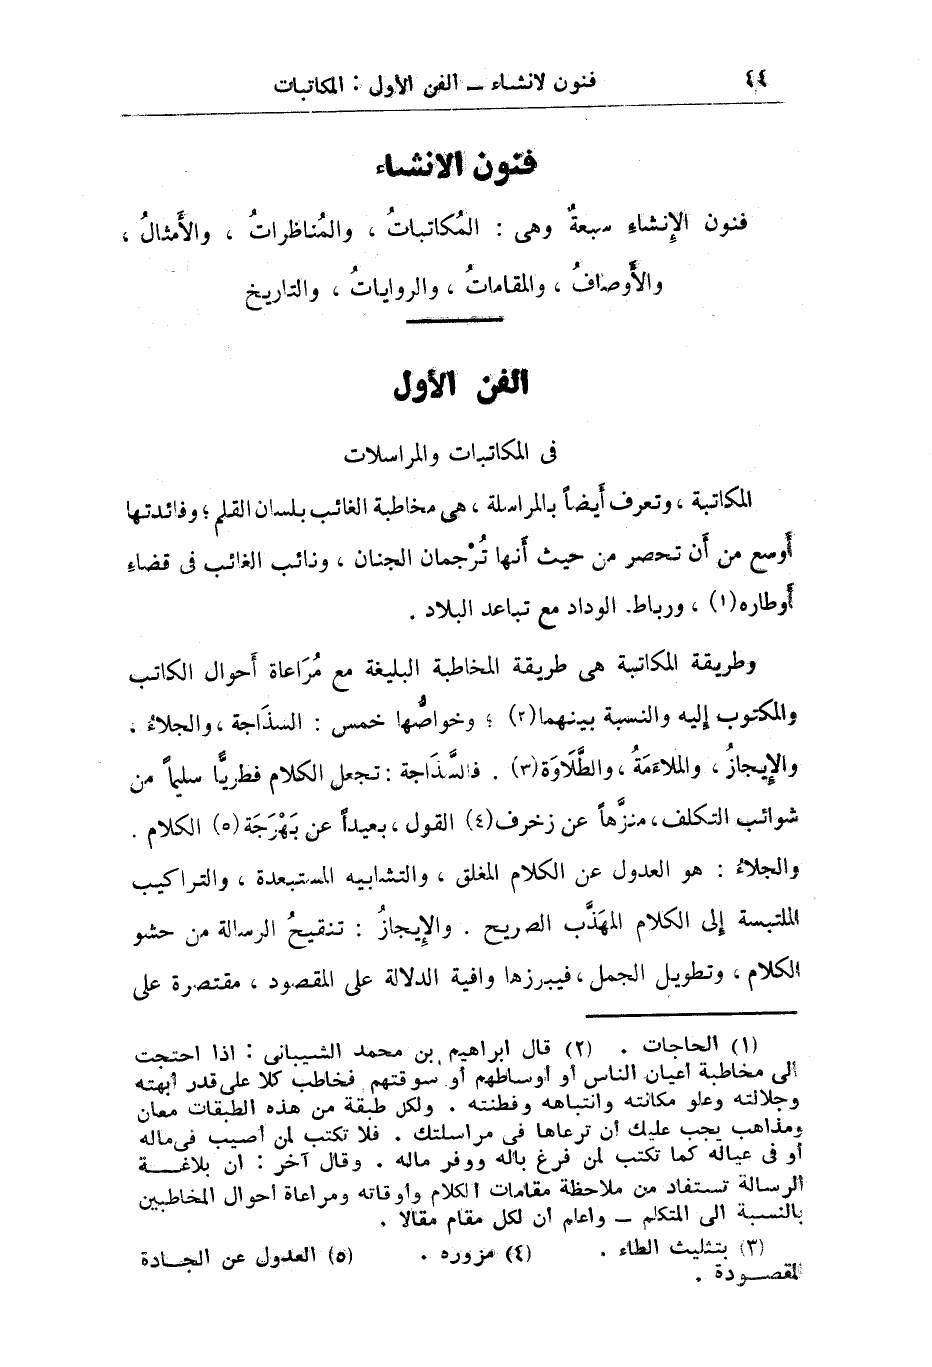 ٤٤ فنون لانشاء – الفن الأول : المكاتبات
فنون الانشاء
فنون الإنشاءِ سبعةٌ وهى : المُكاتباتُ ، والمُناظراتُ ، والأَمثالُ ،
والأَوصافُ ، والمقاماتُ ، والرواياتُ ، والتاريخ
الفن الأول
فى المكاتبات والمراسلات
المكاتبة ، وتعرف أَيضاً بالمراسلة ، هى مخاطبة الغائب بلسان القلم ؛ وفائدتها
أَوسع من أَن تحصر من حيث أَنها تُرْجمان الجنان ، ونائب الغائب فى قضاءِ
أَوطاره(١) ، ورباط الوداد مع تباعد البلاد .
وطريقة المكاتبة هى طريقة المخاطبة البليغة مع مُرَاعاة أَحوال الكاتب
والمكتوب إليه والنسبة بينهما(٢) ؛ وخواصُّها خمس : السذَاجة ، والجلاءُ .
والإِيجازُ ، والملاءَمَةُ ، والطَّلَاوَة(٣) . فالسَّذَاجة : تجعل الكلام فطريًّا سليماً من
شوائب التكلف ، منزَّهاً عن زخرف(٤) القول ، بعيداً عن بَهْرَجَة(٥) الكلام .
والجلاءُ : هو العدول عن الكلام المغلق ، والتشابيه المستبعدة ، والتراكيب
الملتبسة إِلى الكلام المهَذَّب الصريح . والإِيجازُ : تنقيحُ الرسالة من حشو
الكلام ، وتطويل الجمل ، فيبرزها وافية الدلالة على المقصود ، مقتصرة على
(١) الحاجات . (٢) قال ابراهيم بن محمد الشيبانى : اذا احتجت
الى مخاطبة أعيان الناس أو أوساطهم أو سوقتهم فخاطب كلا على قدر أبهته
وجلالته وعلو مكانته وانتباهه وفطنته . ولكل طبقة من هذه الطبقات معان
ومذاهب يجب عليك أن ترعاها فى مراسلتك . فلا تكتب لمن أصيب فى ماله
أو فى عياله كما تكتب لمن فرغ باله ووفر ماله . وقال آخر : ان بلاغة
الرسالة تستفاد من ملاحظة مقامات الكلام وأوقاته ومراعاة أحوال المخاطبين
بالنسبة الى المتكلم – واعلم أن لكل مقام مقالا .
(٣) بتثليث الطاء . (٤) مزوره . (٥) العدول عن الجادة
المقصودة .